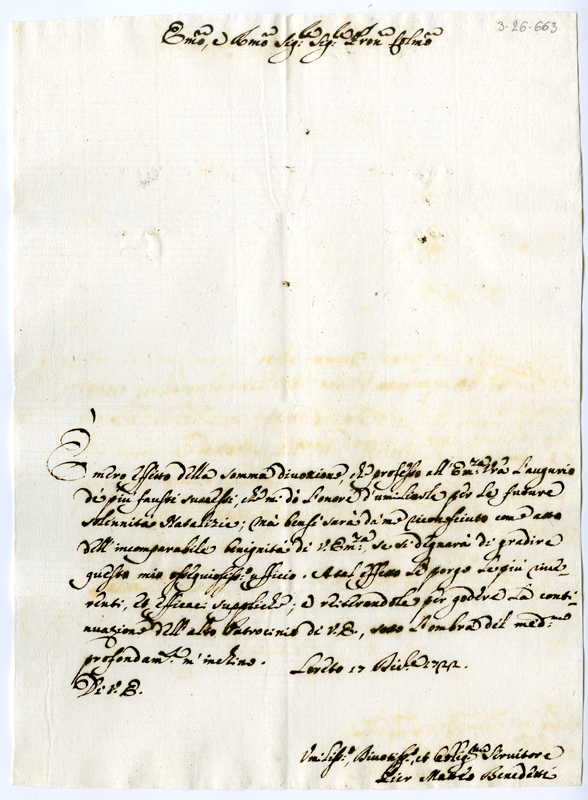 3-26-663
Emo, e Rmo Sig.r Sig.r Pron Colmo
È mero effetto della somma divozione, che professo all' Em.za Vra l'augurio
de più fausti successi, che mi dò l'onore d'umiliarle per le future
solennità Natalizie; Mà bensì sarà dà me riconosciuto come atto
dell' incomparabile benignità di V. Em.za, se si degnarà di gradire
questo mio ossequiosiss.o officio. A tal effetto Le porgo le più rive-
renti, et efficaci suppliche; e reiterandole per godere la conti-
nuazione dell' alto Patrocinio di V. E., sotto l'ombra del med.mo
profondam.te m' inchino. Loreto 17 Dicb.e
Di V. E.
Umiliss.o, Divotiss.o, et Obblig.mo Servitore
Pier Matteo Benedetti